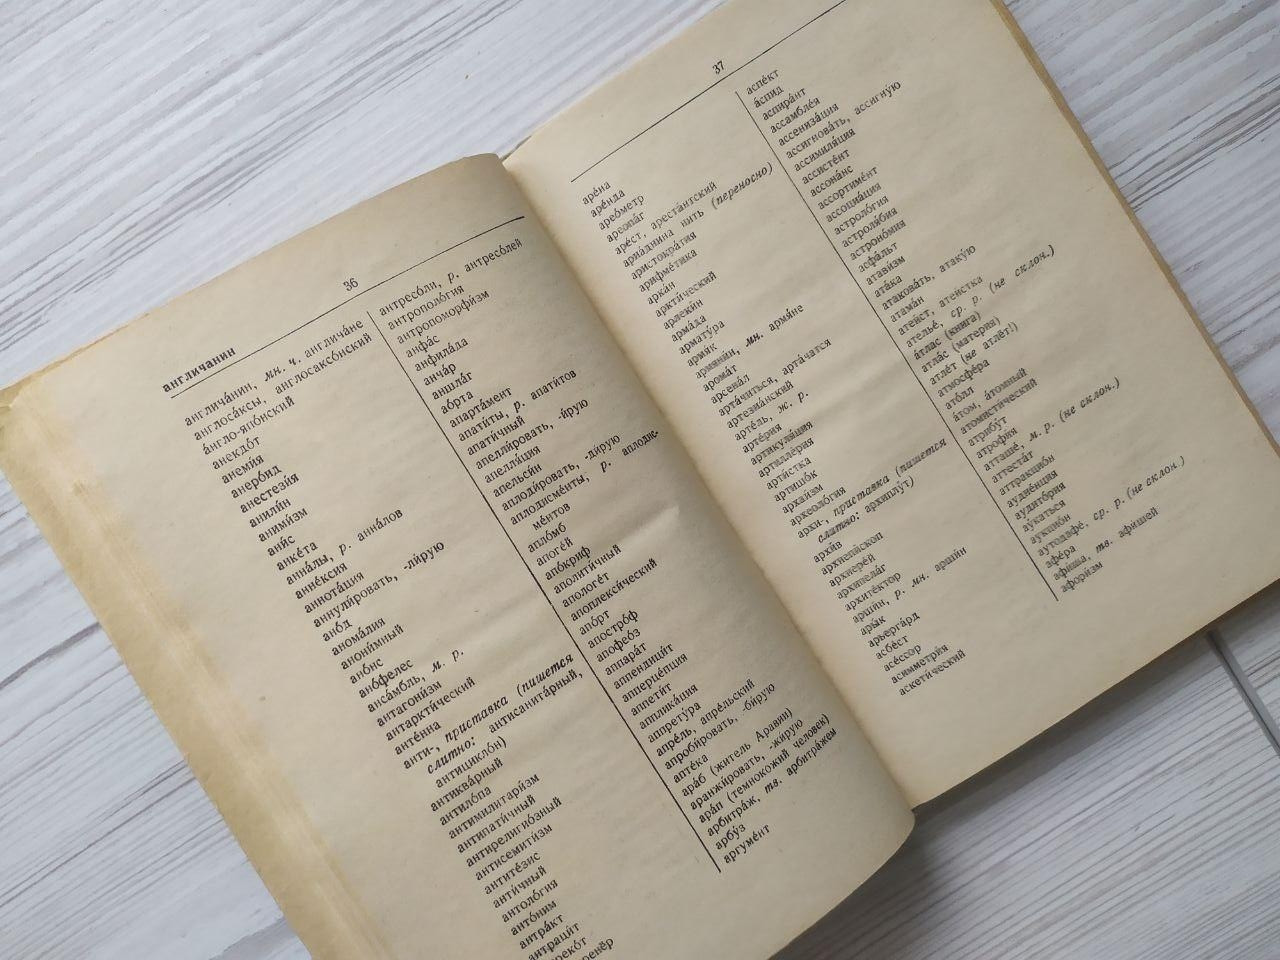 36
англича́нин
англича́нин, мн. ч. англича́не
англоса́ксы, англосаксо́нский
а́нгло-япо́нский
анекдо́т
анеми́я
анеро́ид
анестези́я
анили́н
аними́зм
ани́с
анке́та
анна́лы, р. анна́лов
анне́ксия
аннота́ция
аннули́ровать, -ли́рую
ано́д
анома́лия
анони́мный
ано́нс
ано́фелес
анса́мбль, м. р.
антагони́зм
антаркти́ческий
анте́нна
анти-, приставка (пишется
слитно: антисанита́рный,
антицикло́н)
антиква́рный
антило́па
антимилитари́зм
антипати́чный
антирелигио́зный
антисемити́зм
антите́зис
анти́чный
антоло́гия
анто́ним
антра́кт
антраци́т
антресо́ли, р. антресо́лей
антрополо́гия
антропоморфи́зм
анфа́с
анфила́да
анча́р
аншла́г
ао́рта
апарта́мент
апати́ты, р. апати́тов
апати́чный
апелли́ровать, -и́рую
апелля́ция
апельси́н
аплоди́ровать, -ди́рую
аплодисме́нты, р. аплодис-
ме́нтов
апло́мб
апоге́й
апо́криф
аполити́чный
апологе́т
апоплекси́ческий
апо́рт
апостро́ф
апофео́з
аппара́т
аппендици́т
апперце́пция
аппети́т
апплика́ция
аппрету́ра
апре́ль, апре́льский
апроби́ровать, -би́рую
апте́ка
ара́б (житель Аравии)
аранжи́ровать, -жи́рую
ара́п (темнокожий человек)
арбитра́ж, тв. арбитра́жем
арбу́з
аргуме́нт
37
аре́на
аре́нда
арео́метр
ареопа́г
аре́ст, ареста́нтский
ариа́днина нить (переносно)
аристокра́тия
арифме́тика
арка́н
аркти́ческий
арлеки́н
арма́да
армату́ра
армя́к
армяни́н, мн. армя́не
арома́т
арсена́л
арта́читься, арта́чатся
артезиа́нский
арте́ль, ж. р.
арте́рия
артикуля́ция
артилле́рия
арти́стка
артишо́к
архаи́зм
археоло́гия
архи-, приставка (пишется
слитно: архиплу́т)
архи́в
архиепи́скоп
архиере́й
архипела́г
архите́ктор
арши́н, р. мн. арши́н
ары́к
арьерга́рд
асбе́ст
асе́ссор
асимметри́я
аскети́ческий
аспе́кт
а́спид
аспира́нт
ассамбле́я
ассениза́ция
ассигнова́ть, ассигну́ю
ассимиля́ция
ассисте́нт
ассона́нс
ассортиме́нт
ассоциа́ция
астроло́гия
астроля́бия
астроно́мия
асфа́льт
атави́зм
ата́ка
атакова́ть, атаку́ю
атама́н
атеи́ст, атеи́стка
ателье́, ср. р. (не склон.)
а́тлас (книга)
атла́с (материя)
атле́т (не атлёт!)
атмосфе́ра
ато́лл
а́том, а́томный
атомисти́ческий
атрибу́т
атрофи́я
атташе́, м. р. (не склон.)
аттеста́т
аттракцио́н
аудие́нция
аудито́рия
ау́каться
аукцио́н
аутодафе́, ср. р. (не склон.)
афе́ра
афи́ша, тв. афи́шей
афори́зм